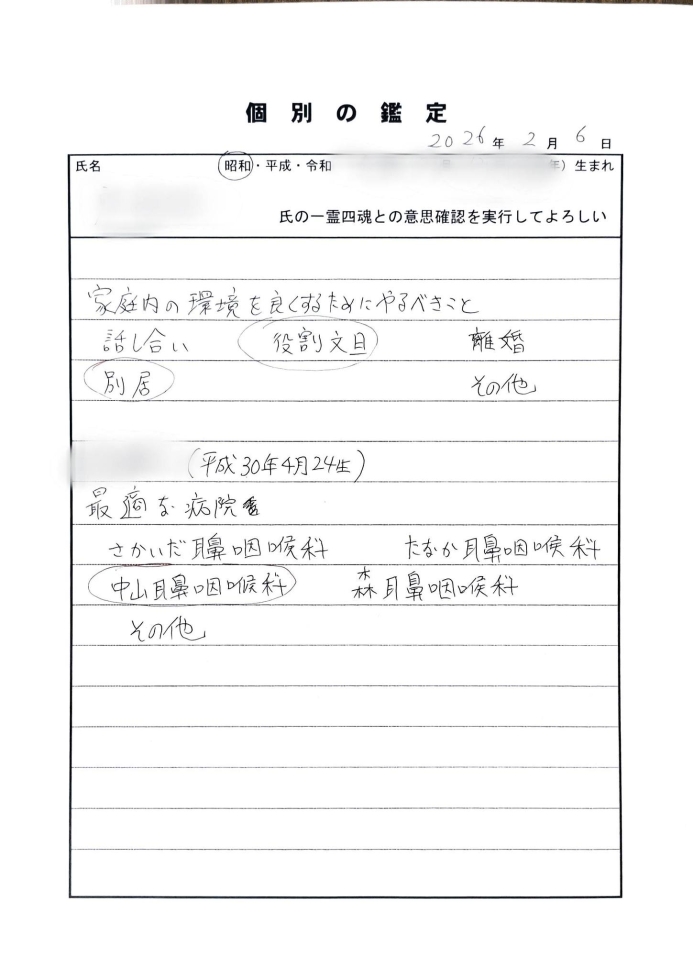 個別の鑑定
2026年2月6日
氏名 昭和・平成・令和 年）生まれ
氏の一霊四魂との意思確認を実行してよろしい
家庭内の環境を良くするためにやるべきこと
話し合い 役割文旦 離婚
別居 その他
（平成30年4月24生）
最適な病院
さかいだ耳鼻咽喉科 たなか耳鼻咽喉科
中山耳鼻咽喉科 森耳鼻咽喉科
その他